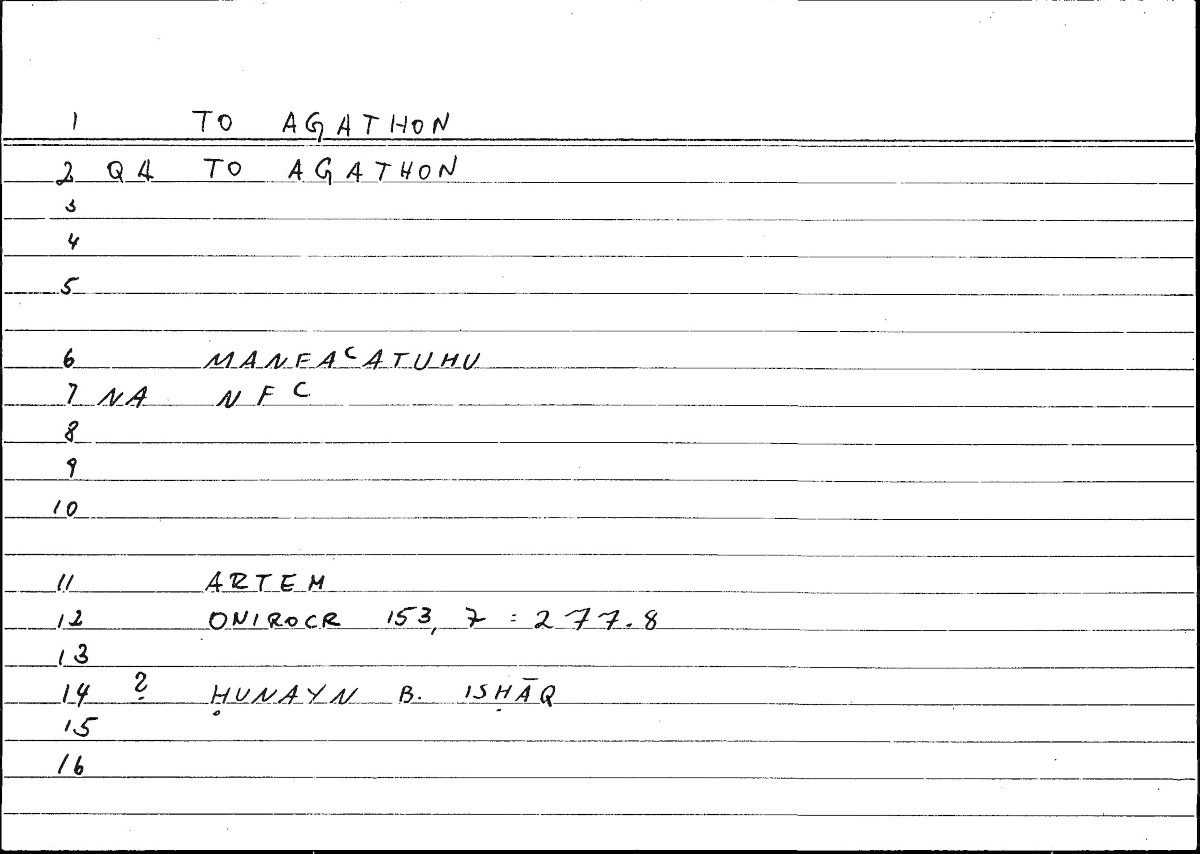 1 TO AGATHON
2 QA TO AGATHON
3
4
5
6 MANFAᶜATUHU
7 NA NFᶜ
8
9
10
11 ARTEM
12 ONIROCR 153, 7 : 277.8
13
14 ? ḤUNAYN B. ISḤĀQ
15
16